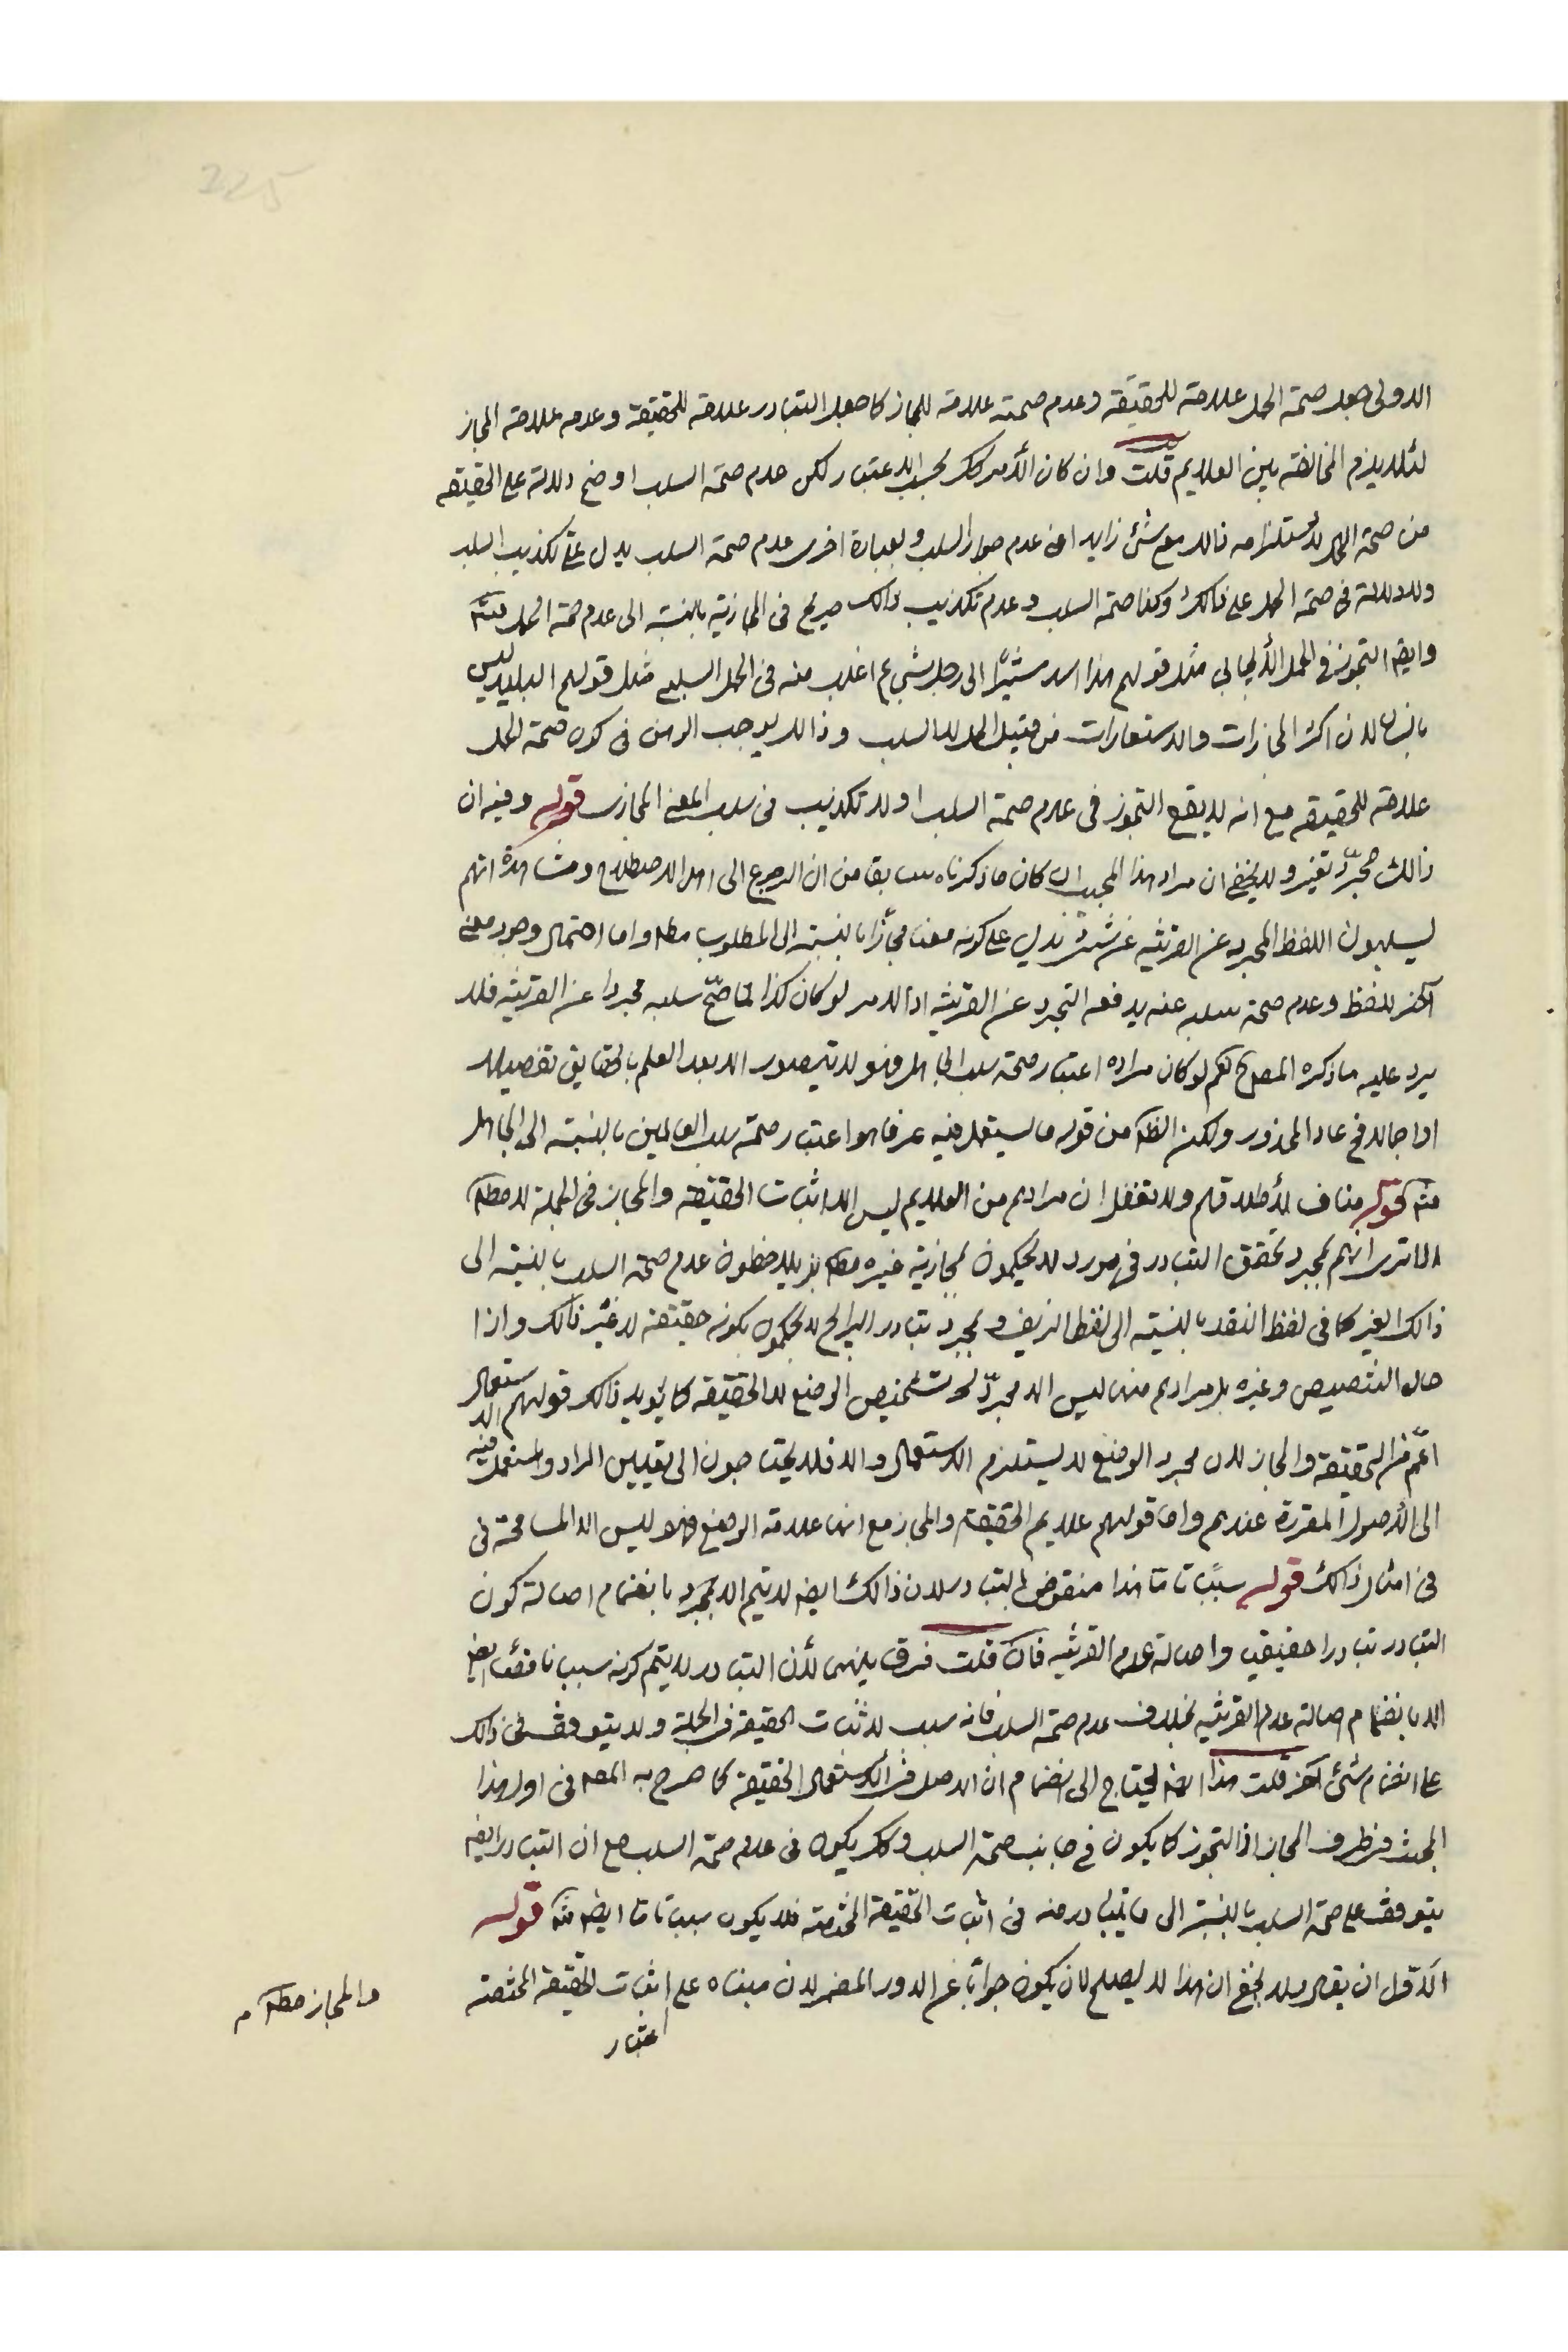 225
الاولى جعل صحة الحمل علامة للحقيقة وعدم صحته علامة للمجاز كما جعل التبادر علامة للحقيقة وعدمه علامة المجاز
لئلا يلزم المخالفة بين العلايم قلت وان كان الأمر كك بحسب الاعتبار لكن عدم صحة السلب اوضح دلالة على الحقيقة
من صحة الحمل لأستلزامه ذالك مع شئ زايد اعنى عدم جواز السلب وبعبارة اخرى عدم صحة السلب يدل على تكذيب السلب
ولا دلالة فى صحة الحمل على ذالك وكذا صحة السلب وعدم تكذيب ذالك صريح فى المجازية بالنسبة الى عدم صحة الحمل فتئه
وايضا التجوز فى الحمل الأيجابى مثل قولهم هذا اسد مشيرًا الى رجل شجاع اغلب منه فى الحمل السلبى مثل قولهم البليد ليس
بانسان لان اكثر المجازات والاستعارات من قبيل الحمل لا السلب وذالك يوجب الوهن فى كون صحة الحمل
علامة للحقيقه مع انه لا يقع التجوز فى عدم صحة السلب اولا تكذيب فى سلب المعنى المجازى قوله وفيه ان
ذالك مجرّد تغير ولا يخفى ان مراد هذا المجيب ان كان ما ذكرناه سابقا من ان الرجوع الى اهل الاصطلاح ومشاهدة انهم
يسلبون اللفظ المجرد عن القرينه عن شئ تدل على كونه معنا مجازًا بالنسبة الى المطلوب مطه واما احتمال وجود معنى
آخر للفظ وعدم صحة سلبه عنه يدفعه التجرد عن القرينه اذ الامر لو كان كذا لما صحّ سلبه مجردا عن القرينه فلا
يرد عليه ما ذكره المص ره نعم لو كان مراده اعتبار صحة سلب الجاهل فهو لا يتصور الا بعد العلم بالحقايق تفصيلا
او اجمالا فى عاد المحذور ولكن الظه من قوله ما يستعمل فيه عرفا هو اعتبار صحة سلب العالمين بالنسبة الى الجاهل
فته قوله مناف لأطلاقهم ولا تغفل ان مرادهم من العلايم ليس الا اثبات الحقيقة والمجاز فى الجملة لا مطه
الا ترى انهم بمجرد تحقق التبادر فى مورد لا يحكمون بمجازية غيره مطه بل يلاحظون عدم صحة السلب بالنسبة الى
ذالك الغير كما فى لفظ النقد بالنسبة الى لفظ الزيف وبمجرد تبادر الرايج لا يحكمون بكونه حقيقة لا غير ذالك واذا
حال التنصيص وغيره بل مرادهم منها ليس الا مجرّد تشخيص الوضع لا الحقيقه كما يؤيد ذالك قولهم الاستعمال
اعّم من الحقيقة والمجاز لان مجرد الوضع لا يستلزم الاستعمال والا فلا يحتاجون الى تعيين المراد والمستعمل فيه
الى الأصول المقررة عندهم واما قولهم علايم الحقيقة والمجاز مع انها علامة الوضع فهو ليس الا المسامحة فى
فى امثال ذالك قوله سببًا تاما هذا منقوض بالتبادر لان ذالك ايضا لا يتم الا بمجرد بانضمام اصالة كون
التبادر تبادرا حقيقيا واصالة عدم القرينه فان قلت فرق بينهما لأن التبادر لا يتم كونه سببا ناقصا ايضا
الا بانضمام اصالة عدم القرينه بخلاف عدم صحة السلب فانه سبب لاثبات الحقيقة فى الجملة ولا يتوقف فى ذالك
على انضمام شئ آخر قلت هذا ايضا يحتاج الى انضمام ان الاصل فى الأستعمال الحقيقة كما صرح به المص فى اول هذا
المبحث فى طرف المجاز اذ التجوز كما يكون فى جانب صحة السلب وكك يكون فى عدم صحة السلب مع ان التبادر ايضا
يتوقف على صحة السلب بالنسبة الى ما يتبادر منه فى اثبات الحقيقة المختصة فلا يكون سببا تاما ايضا فته قوله
الا قول ان يقال ولا يخفى ان هذا لا يصلح لان يكون جوابًا عن الدور المضمر لان مبناه على اثبات الحقيقة المختصة
والمجاز مطه م
اعتبار